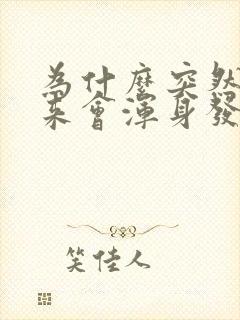 為什麼突然
來會渾身發
笑佳人